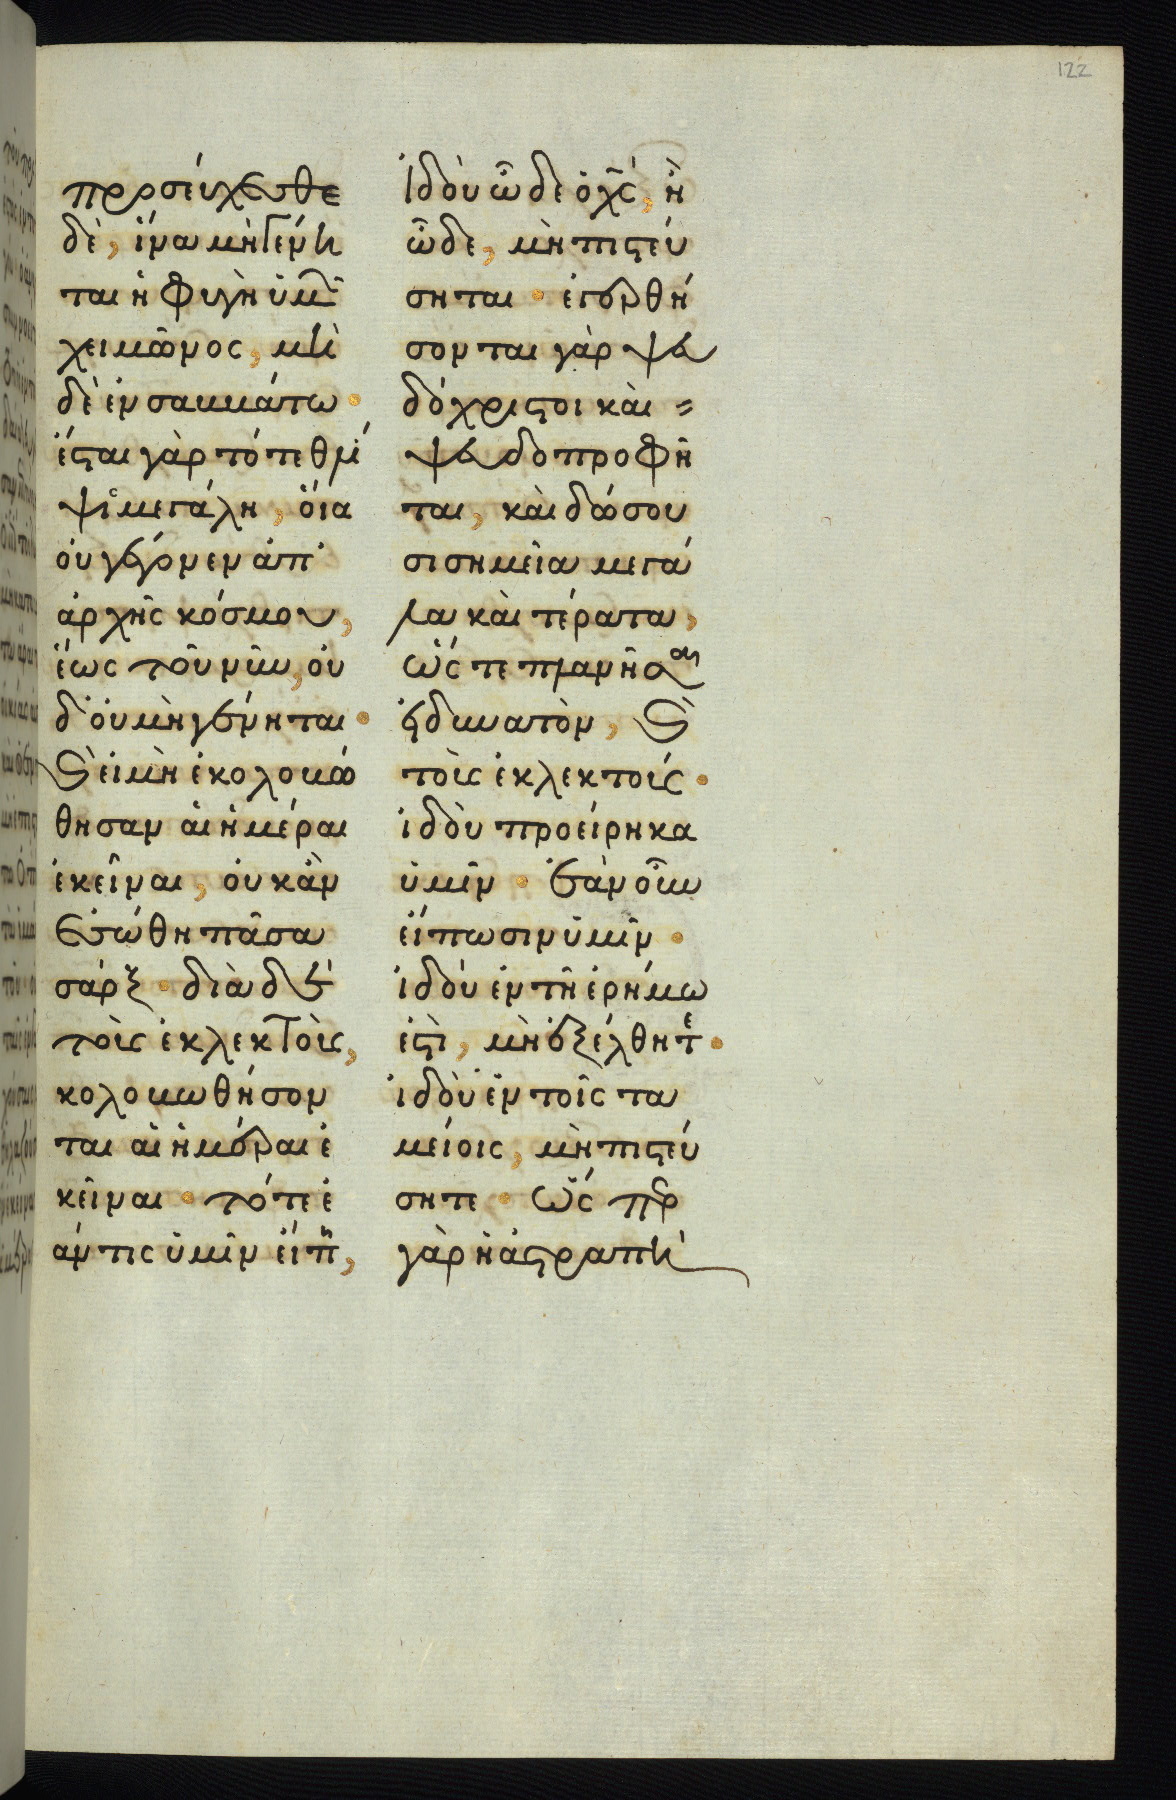 122
προσεύχεσθε
δὲ, ἵνα μὴ γένη
ται ἡ φυγὴ ὑμῶ
χειμῶνος, μὴ
δὲ ἐν σαββάτω·
ἔσται γὰρ τότε θλί
ψις μεγάλη, ὅια
ὀυ γέγονεν ἀπ'
ἀρχῆς κόσμου,
ἕως τοῦ νῦν, ὀυ
δ' ὀυ μὴ γένηται·
καὶ ἐι μὴ ἐκολοβώ
θησαν ἁι ἡμέραι
ἐκεῖναι, ὀυκ ἂν
ἐσώθη πᾶσα
σάρξ· διὰ δὲ
τοὺς ἐκλεκτοὺς,
κολοβωθήσον
ται ἁι ἡμέραι ἐ
κεῖναι· τότε ἐ
άν τις ὑμῖν ἔιπη,
ἰδοὺ ὧδε ὁ χς, ἢ
ὧδε, μὴ πιστεύ
σηται· ἐγερθή
σονται γὰρ ψευ
δόχριστοι καὶ =
ψευδοπροφῆ
ται, καὶ δώσου
σι σημεῖα μεγά
λα καὶ τέρατα,
ὥς τε πλανῆσαι
εἰ δυνατὸν, καὶ
τοὺς ἐκλεκτούς·
ἰδοὺ προείρηκα
ὑμῖν· ἐὰν οὖν
ἔιπωσιν ὑμῖν·
ἰδοὺ ἐν τῆ ἐρήμω
ἐστὶ, μὴ ἐξέλθητε·
ἰδοὺ ἐν τοῖς τα
μείοις, μὴ πιστεύ
σητε· ὥς περ
γὰρ ἡ ἀστραπὴ